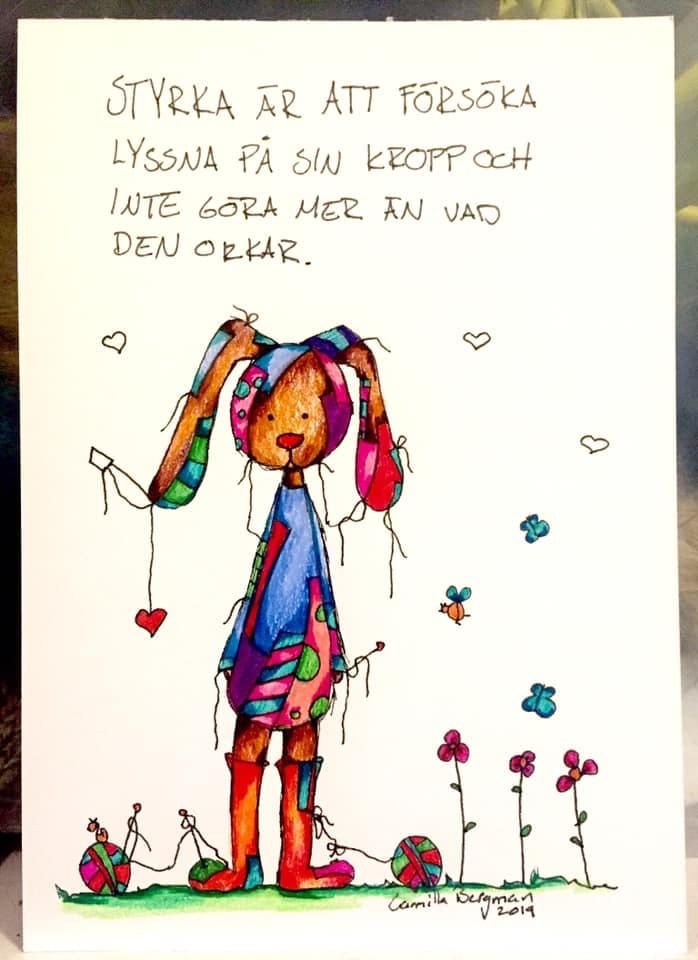 STYRKA ÄR ATT FÖRSÖKA
LYSSNA PÅ SIN KROPP OCH
INTE GÖRA MER ÄN VAD
DEN ORKAR.
Camilla Bergman
2019